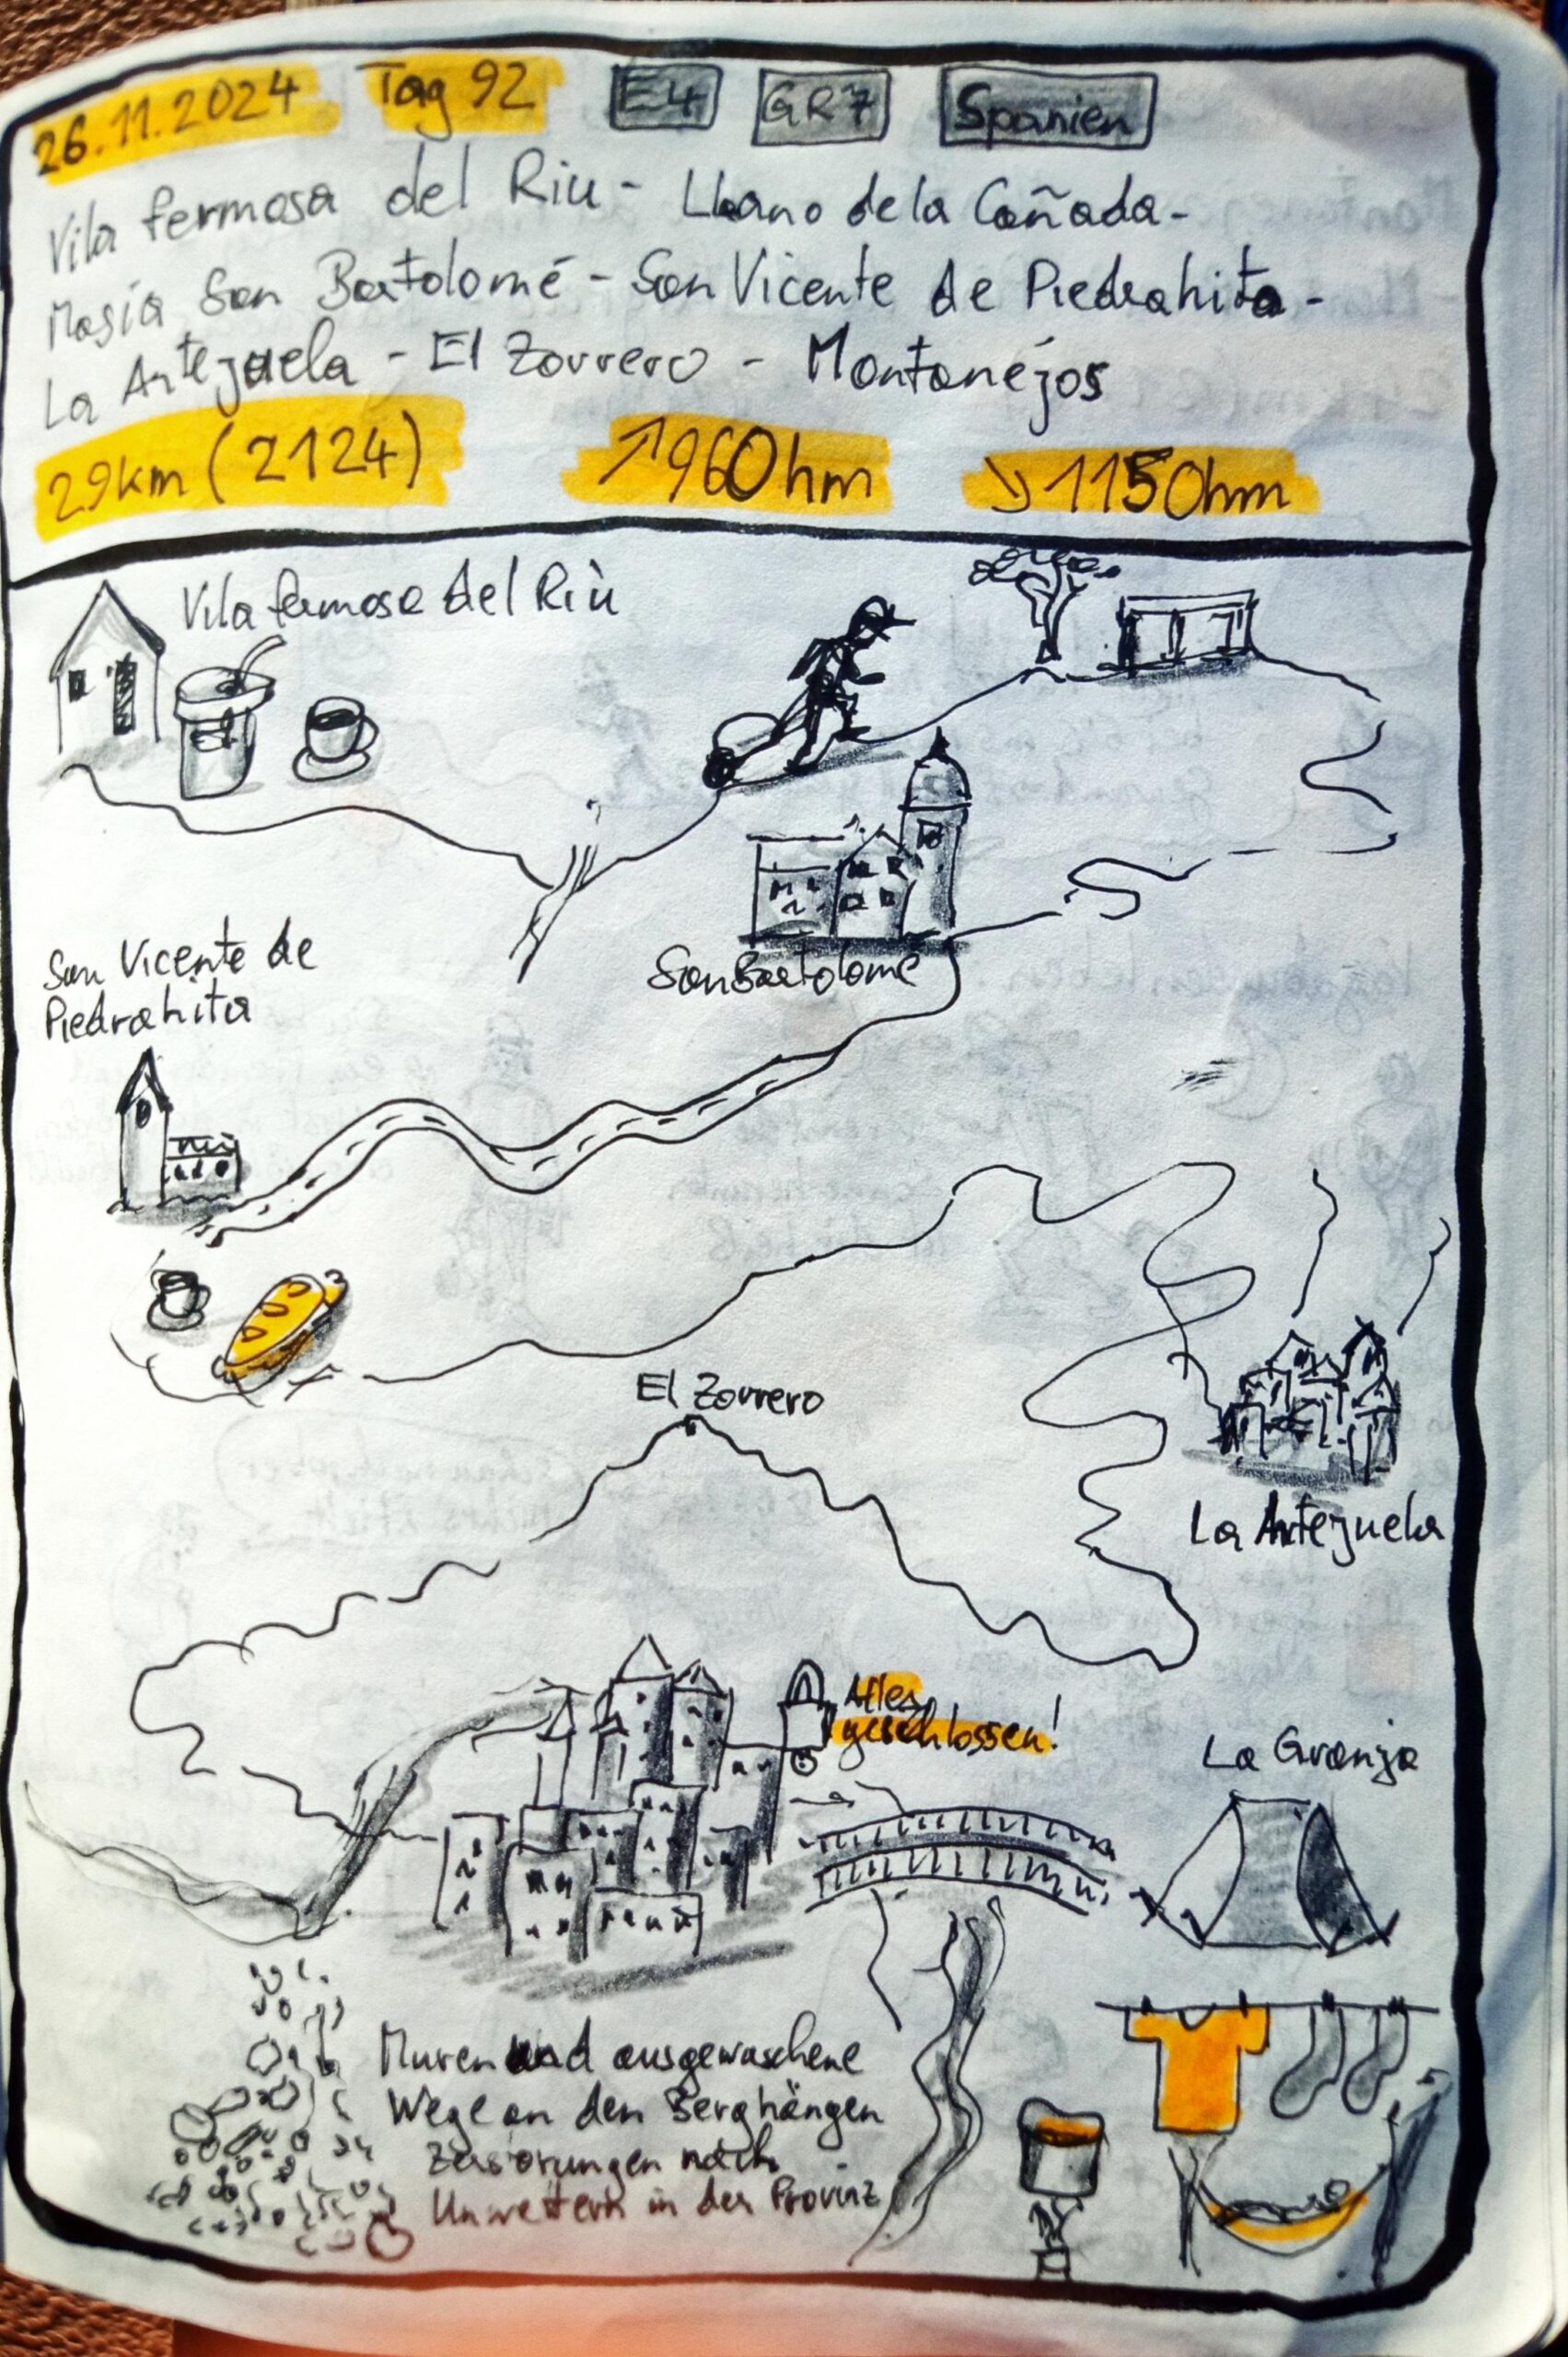 26.11.2024 Tag 92 E4 GR7 Spanien
Vilafermosa del Riu - Llano de la Cañada -
Masía San Bartolomé - San Vicente de Piedrahita -
La Artejuela - El Zorrero - Montanejos
29km (2124) ↗960hm ↘1150hm
Vilafermosa del Riu
San Bartolomé
San Vicente de
Piedrahita
El Zorrero
La Artejuela
Alles
geschlossen!
La Granja
Muren und ausgewaschene
Wege an den Berghängen
Zerstörungen nach
Unwettern in der Provinz